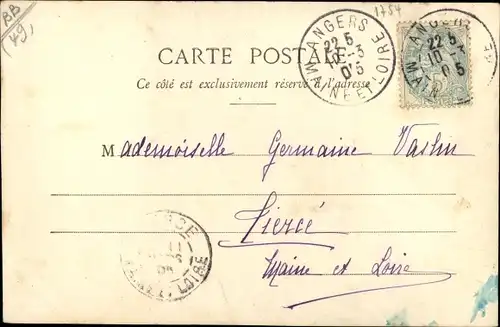 BB
(49)
1754
CARTE POSTALE
Ce côté est exclusivement réservé à l'adresse
ANGERS
MAINE ET LOIRE
22 5
10-3
05
ANGERS
22 5
10-3
05
MAINE
Mademoiselle Germaine Vaslin
Tiercé
Maine et Loire
LOIRE